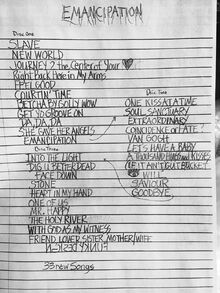 EMANCIPATION
Disc One
SLAVE
NEW WORLD
JOURNEY 2 the Center of Your
Right Back Here in My Arms
FEEL GOOD
COURTIN' TIME
BETCHA BY GOLLY WOW
GET YO GROOVE ON
DA, DA, DA
SHE GAVE HER ANGELS
EMANCIPATION
ONE KISS AT A TIME
SOUL SANCTUARY
EXTRAORDINARY
COINCIDENCE or FATE?
VAN GOGH
LET'S HAVE A BABY
A THOUSAND HUGS and KISSES
CAN'T
BUCKET
WILL
SAVIOUR
GOODBYE
INTO THE LIGHT
DIG U BETTER DEAD
FACE DOWN
STONE
HEART IN MY HAND
ONE OF US
MR. HAPPY
THE HOLY RIVER
WITH GOD AS MY WITNESS
FRIEND LOVER SISTER MOTHER/WIFE
33 new Songs